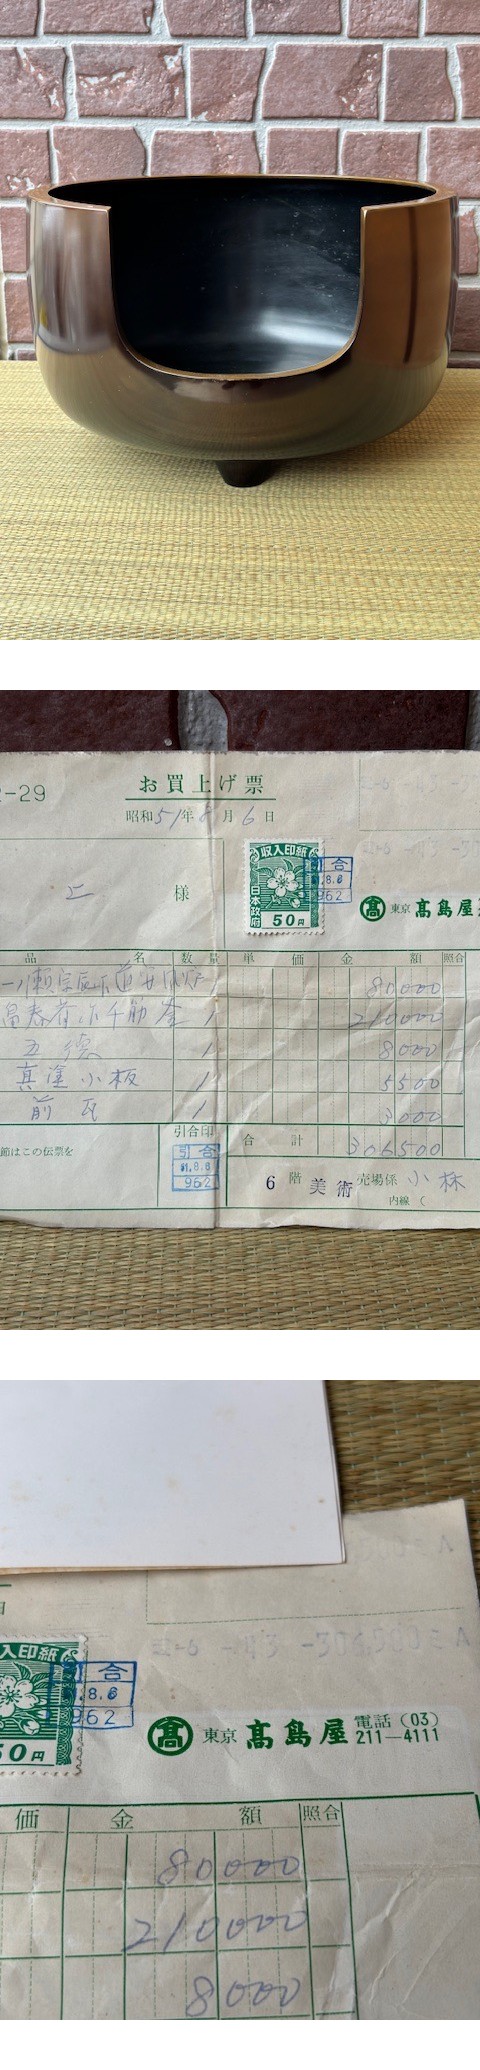 2-29
お買上げ票
昭和51年8月6日
上 様
収入印紙
日本政府
50円
引合
.8.6
962
髙 東京 髙島屋
品 名 数量 単 価 金 額 照合
一ノ瀬宗辰 道安風炉 1 80000
1 210000
五徳 1 8000
真塗小板 1 5500
前瓦 1 3000
節はこの伝票を
引合印
引合
51.8.6
962
合 計 306500
6 階 美術 売場係 小林
内線(
入印紙
50円
引合
.8.6
962
-43 -306,500
髙 東京 髙島屋 電話(03)
211—4111
価 金 額 照合
80000
210000
8000